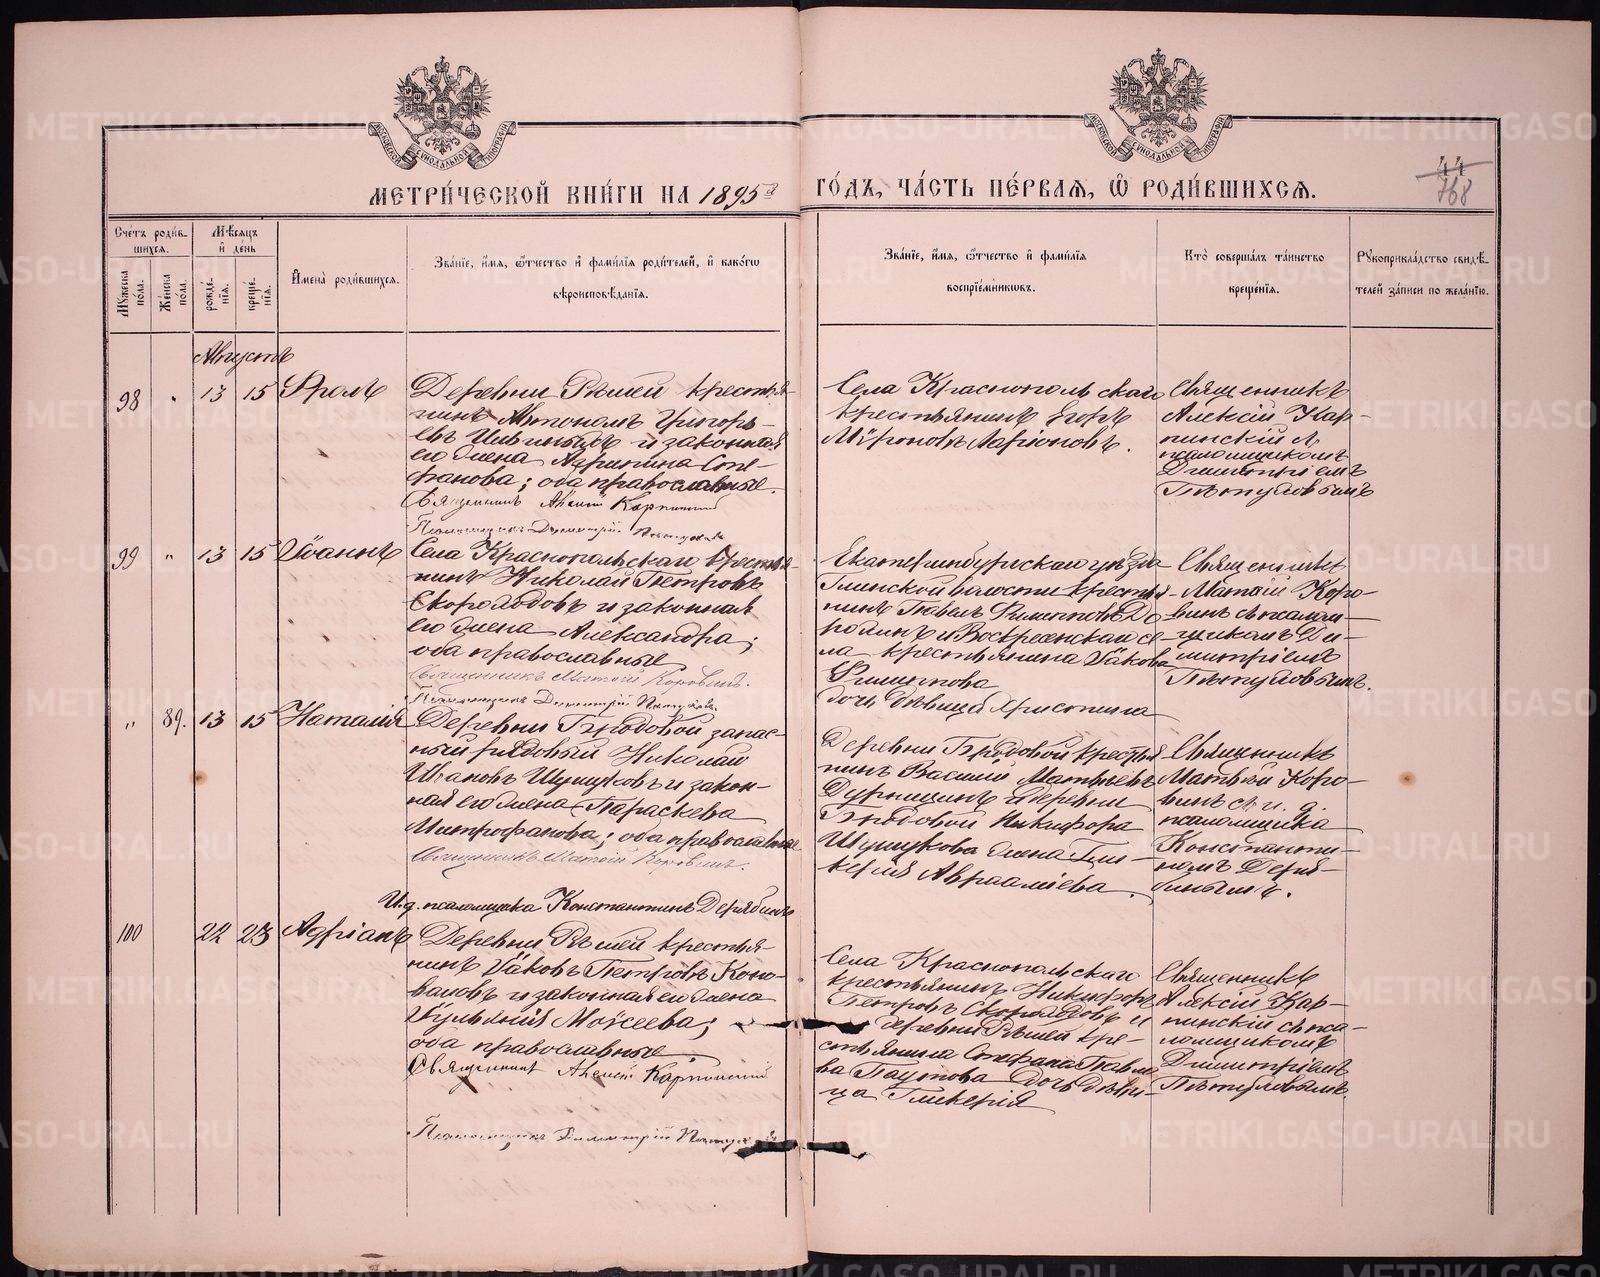 МОСКОВСКОЙ СѴНОДАЛЬНОЙ ТИПОГРАФІИ
МОСКОВСКОЙ СѴНОДАЛЬНОЙ ТИПОГРАФІИ
МЕТРИ́ЧЕСКОЙ КНИ́ГИ НА 1895й
ГО́ДЪ, ЧА́СТЬ ПЕ́РВАѦ, Ѡ РОДИ́ВШИХСѦ.
44
768
Сче́тъ роди́в-
шихся.
Мѣсяцъ
и де́нь
Мꙋжеска
по́ла.
Же́нска
по́ла.
рожде́-
нїя.
креще́-
нїя.
Имена̀ роди́вшихся.
Зва́нїе, и́мя, ѻ́тчество и фами́лїя роди́телей, и како́гѡ
вѣроисповѣ́данїя.
Зва́нїе, и́мя, ѻ́тчество и фами́лїя
воспрїе́мникѡвъ.
Кто̀ соверша́лъ та́инство
креще́нїя.
Рꙋкоприкла́дство свидѣ́-
телей за́писи по жела́нїю.
Августъ
98 " 13 15 Фролъ
Деревни Рѣшей крестья-
нинъ Автономъ Григорь-
евъ и законная
его жена Агрипина Сте-
фанова; оба православные.
Священникъ Алексій Карпинскій
Псаломщикъ Димитрій
Села Краснопольскаго
крестьянинъ Егоръ
Мѵроновъ Ларіоновъ.
Священникъ
Алексій Кар-
пинскій с
псаломщикомъ
Димитріемъ
Пѣтуховымъ
99 " 13 15 Іоаннъ
Села Краснопольскаго крестья-
нинъ Николай Петровъ
Скороходовъ и законная
его жена Александра;
оба православные
Священникъ Матѳій Коровинъ.
Псаломщикъ Димитрій Пѣтуховъ.
Екатеринбургскаго уѣзда
Глинской волости крестья-
нинъ Павелъ Филиповъ До-
родинъ и Воскресенскаго се-
ла крестьянина Іакова
Филипова
дочь дѣвица Христина
Священникъ
Матѳій Коро-
винъ съ псалом-
щикомъ Ди-
митріемъ
Пѣтуховымъ.
" 89. 13 15 Наталія
Деревни Бродовой запас-
ный рядовый Николай
Ивановъ Шумковъ и закон-
ная его жена Параскева
Митрофанова; оба православные
Священникъ Матѳій Коровинъ.
И.д. псаломщика Константинъ Дерябинъ
Деревни Бродовой крестья-
нинъ Василій Матвѣевъ
и деревни
Бродовой Никифора
Шумкова жена Гли-
керія Авраамiева.
Священникъ
Матѳій Коро-
винъ съ и. д.
псаломщика
Константи-
номъ Деря-
бинымъ.
100 22 23 Адріанъ
Деревни Рѣшей крестья-
нинъ Іаковъ Петровъ Коно-
валовъ и законная его жена
Іульянія Моѵсеева;
оба православные
Священникъ Алексій Карпинскій
Псаломщикъ Димитрій
Села Краснопольскаго
крестьянинъ Никифоръ
Петровъ Скороходовъ и
деревни Рѣшей кре-
стьянина Стефана Павло-
ва Паутова дочь дѣви-
ца Гликерія
Священникъ
Алексій Кар-
пинскій съ пса-
ломщикомъ
Димитріемъ
Пѣтуховымъ
METRIKI.GASO-URAL.RU